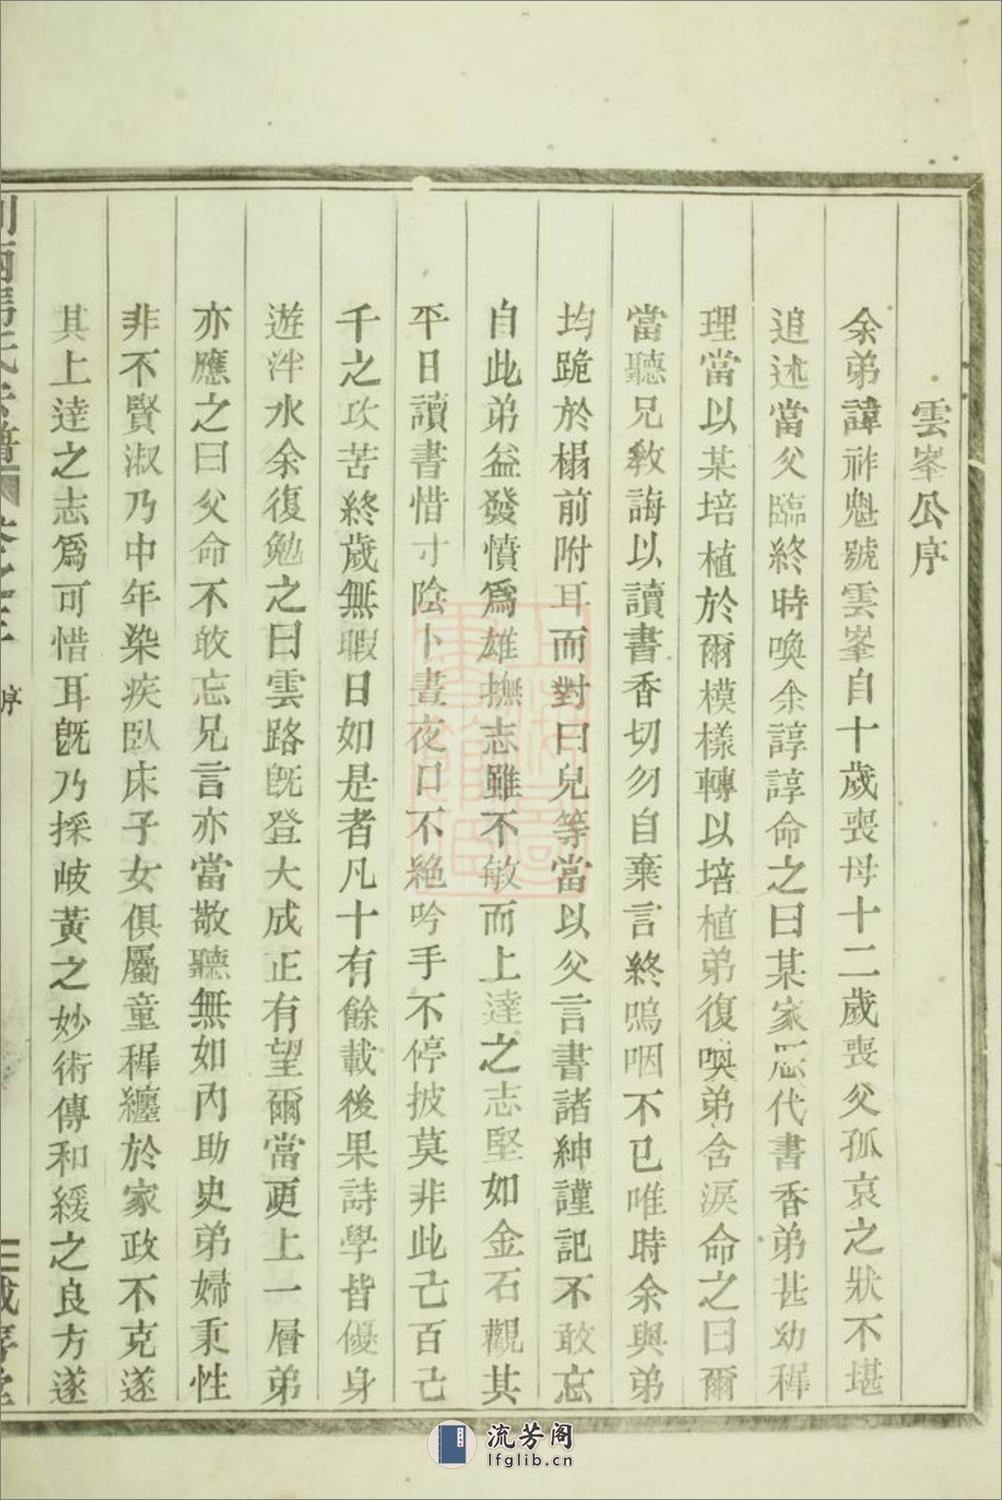 雲峯公序
余弟諱祚魁號雲峯自十歲喪母十二歲喪父孤哀之狀不堪
追述當父臨終時喚余諄諄命之曰某家歷代書香弟甚幼穉
理當以某培植於爾模樣轉以培植弟復喚弟含淚命之曰爾
當聽兄敎誨以讀書香切勿自棄言終嗚咽不已唯時余與弟
均跪於榻前附耳而對曰兒等當以父言書諸紳謹記不敢忘
自此弟益發憤爲雄撫志雖不敏而上達之志堅如金石觀其
平日讀書惜寸陰卜晝夜口不絶吟手不停披莫非此己百己
千之攻苦終歲無暇日如是者凡十有餘載後果詩學皆優身
遊泮水余復勉之曰雲路旣登大成正有望爾當更上一層弟
亦應之曰父命不敢忘兄言亦當敬聽無如內助史弟婦秉性
非不賢淑乃中年染疾臥床子女俱屬童穉纏於家政不克遂
其上達之志爲可惜耳旣乃採岐黃之妙術傳和緩之良方遂
序
流芳阁
lfglib.cn